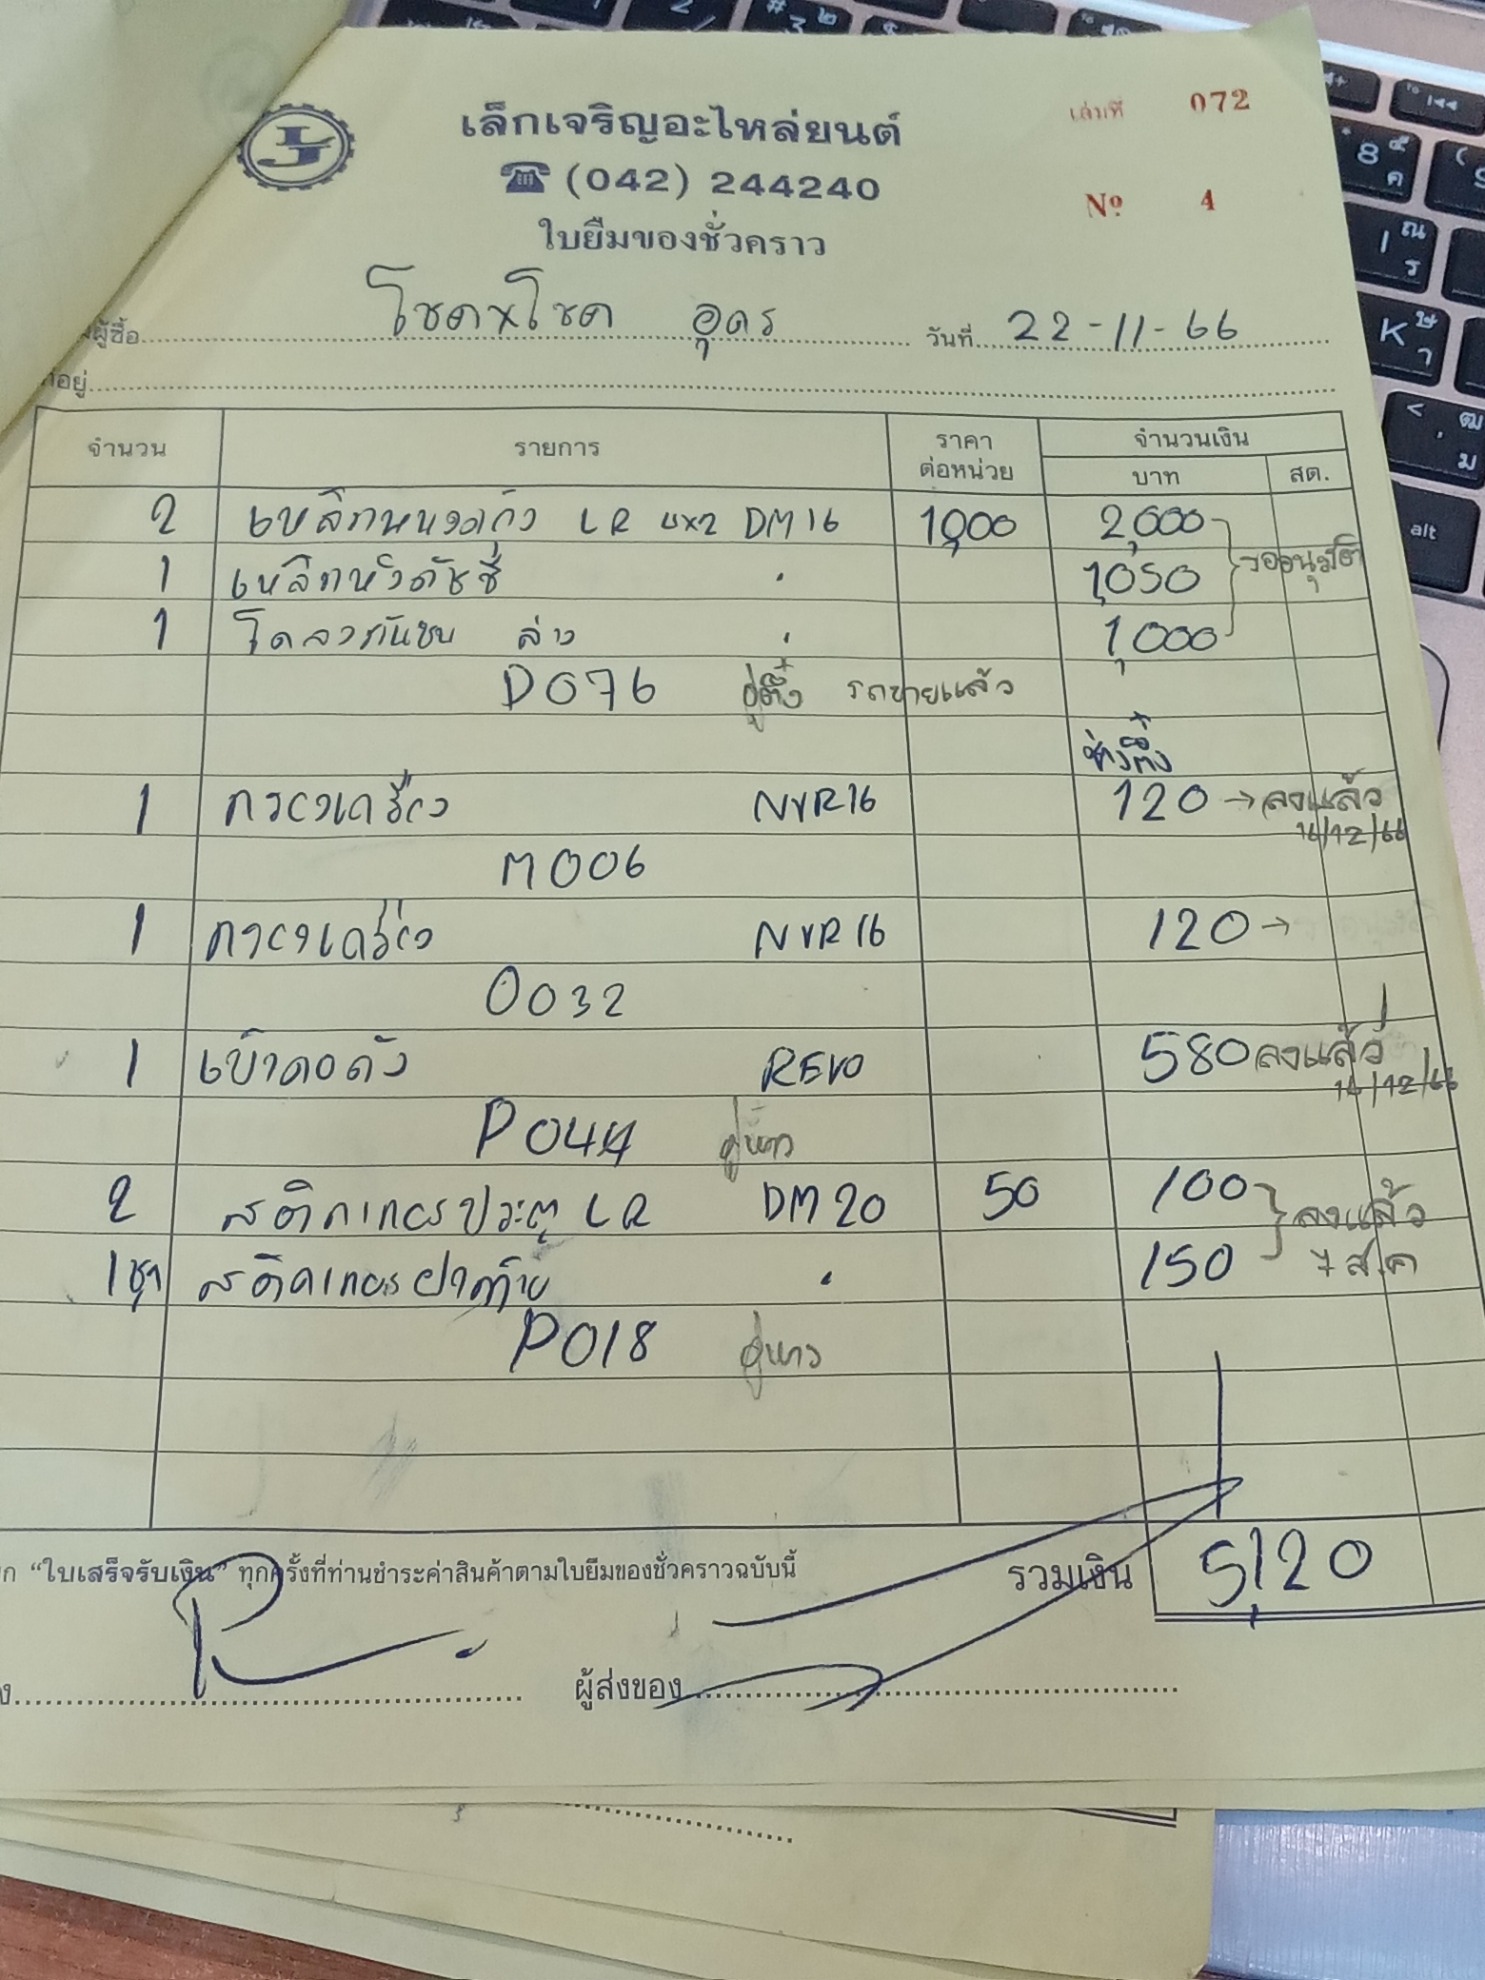 เล็กเจริญอะไหล่ยนต์
เล่มที่ 072
☎ (042) 244240
Nº 4
ใบยืมของชั่วคราว
ผู้ซื้อ โชคxโชค อุดร วันที่ 22-11-66
ที่อยู่
จำนวน รายการ ราคาต่อหน่วย จำนวนเงิน
บาท สต.
2 LR 4x2 DM16 1,000 2,000
รออนุมัติ
1 เหล็กหิ้วคัชชี 1,050
1 โครงกันชน ล่าง 1,000
D076 อู่ตึ๋ง รถขายแล้ว
ช่างตึ๋ง
1 กรองเครื่อง NVR16 120 → ลงแล้ว
16/12/66
M006
1 กรองเครื่อง NVR16 120 →
O032
1 เบ้าคอดัง REVO 580 ลงแล้ว
16/12/66
P044 อู่หาว
2 สติกเกอร์ประตู LR DM20 50 100
ลงแล้ว
1ชุด สติกเกอร์ฝาท้าย 150
7 ส.ค
P018 อู่หาว
"ใบเสร็จรับเงิน" ทุกครั้งที่ท่านชำระค่าสินค้าตามใบยืมของชั่วคราวฉบับนี้ รวมเงิน 5,120
ผู้ส่งของ